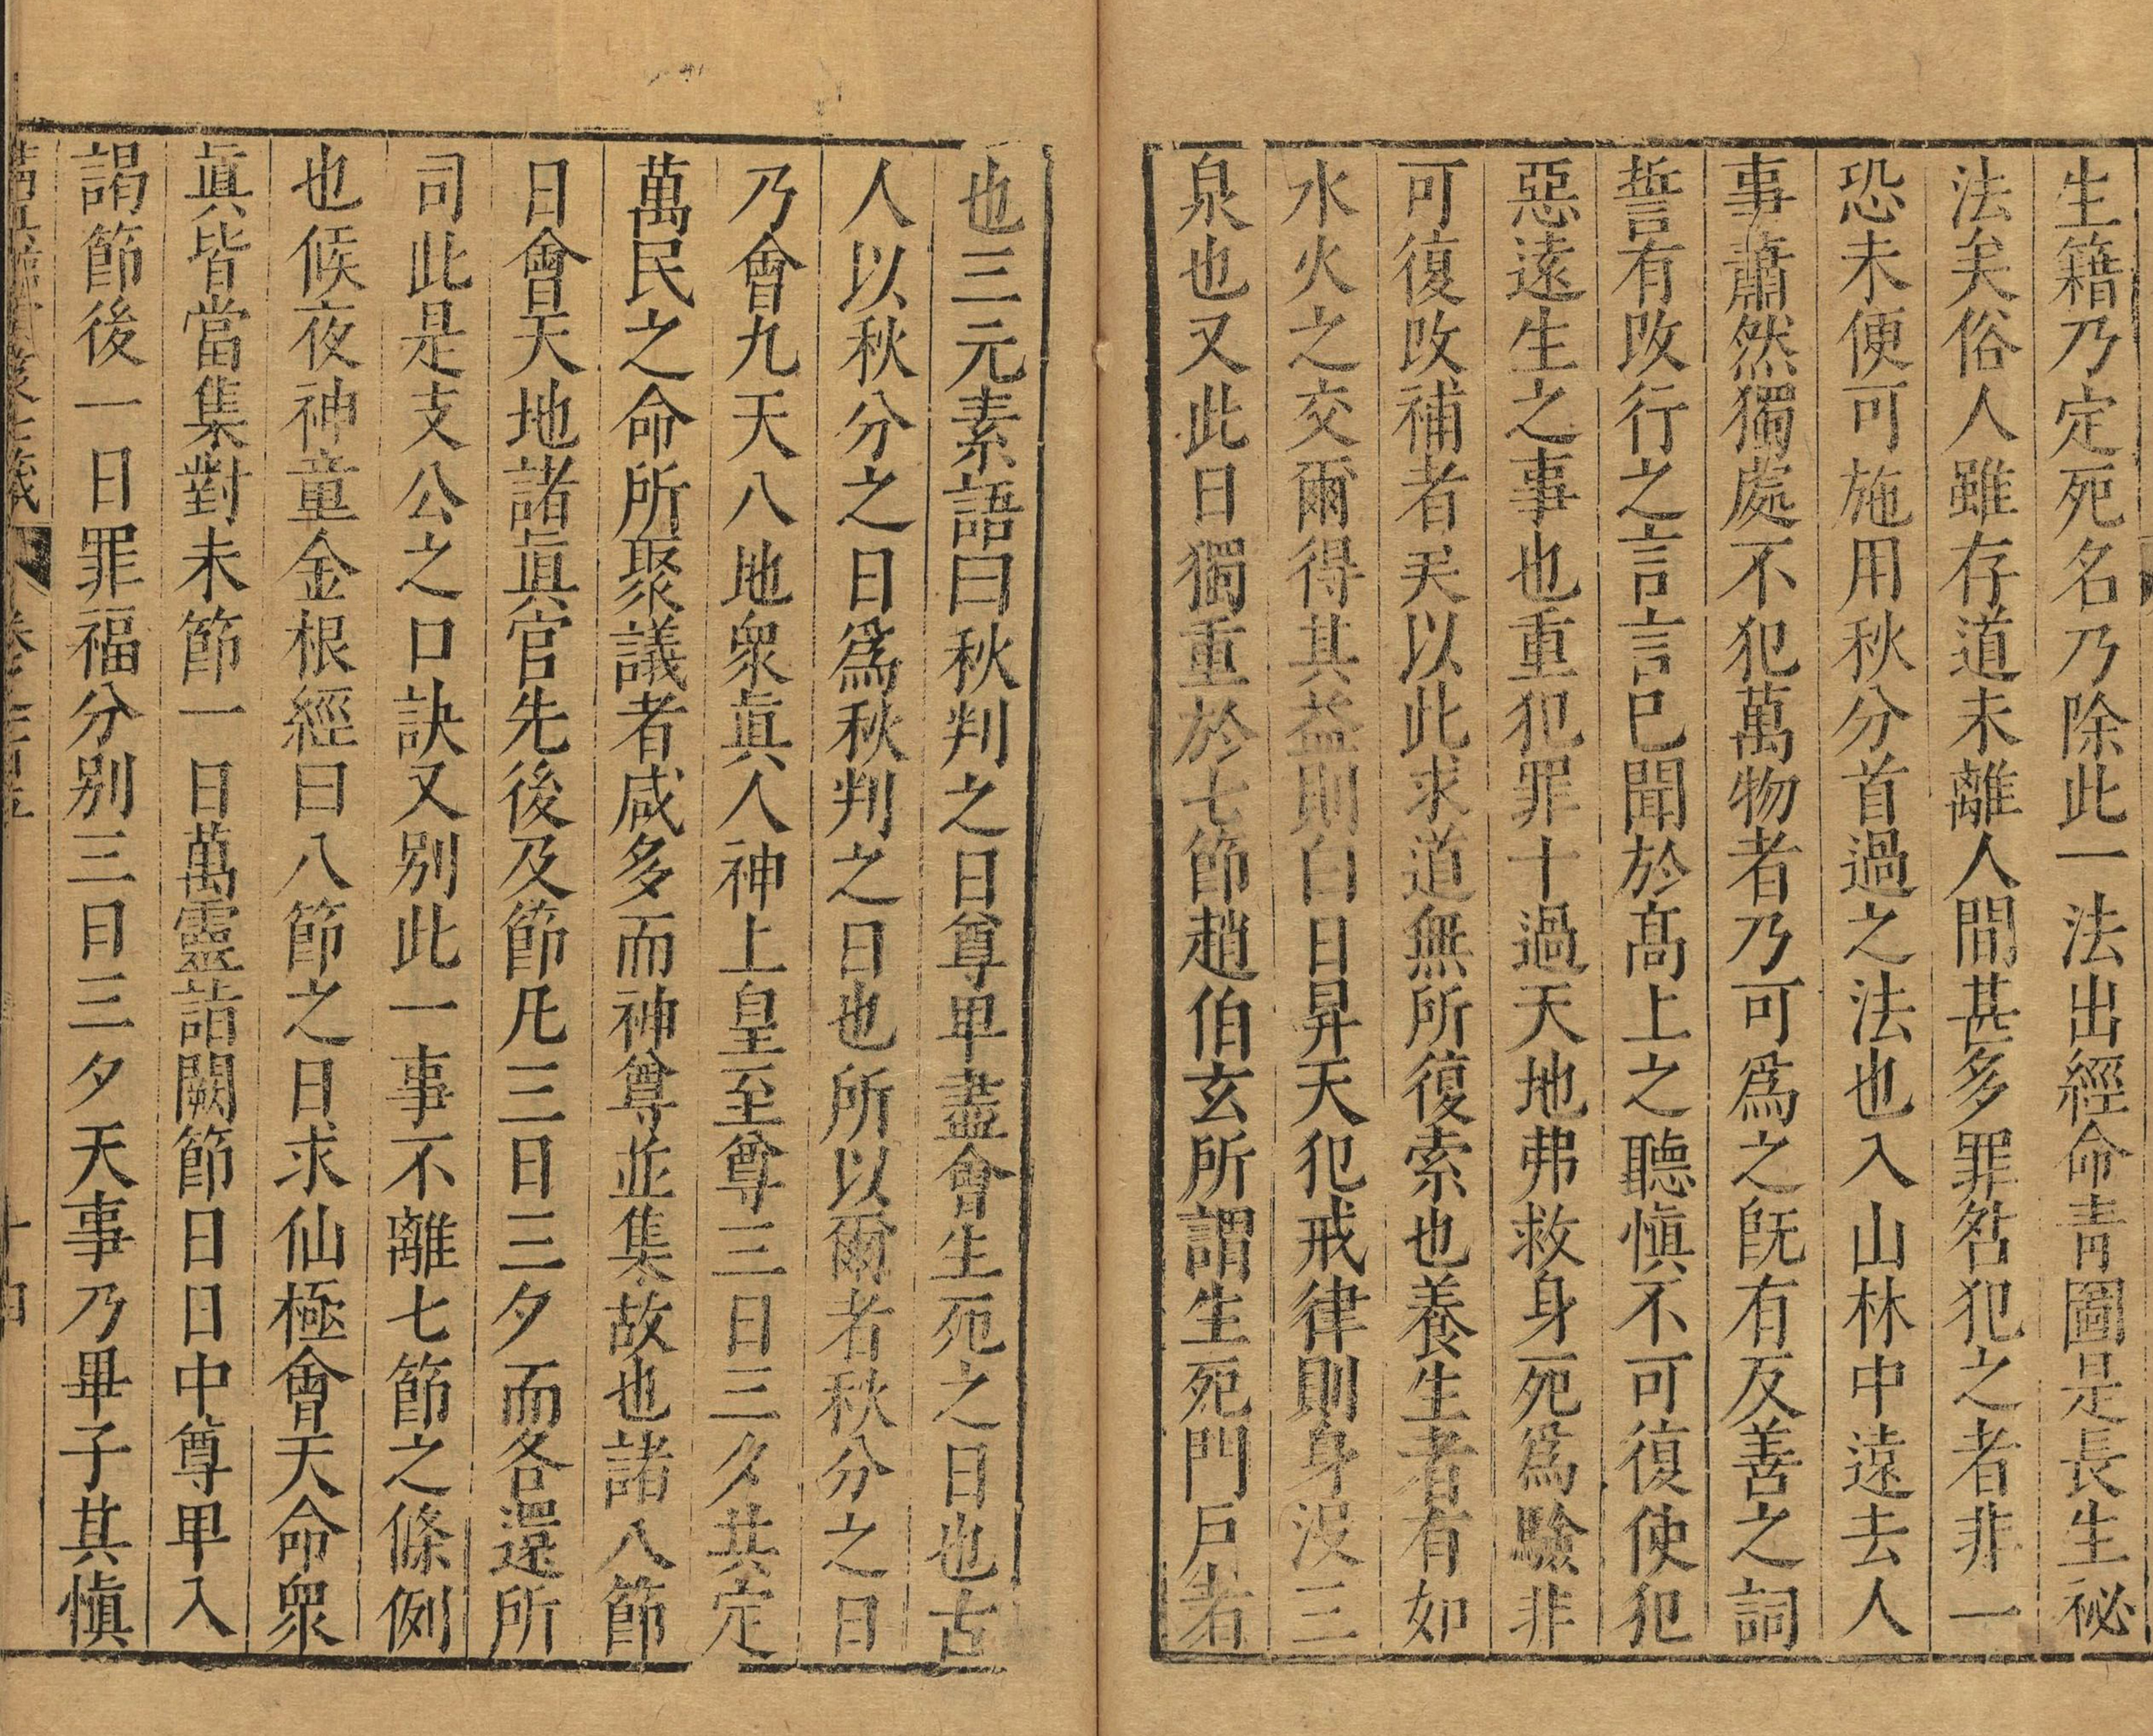 生籍乃定死名乃除此一法出經命青圖是長生祕
法矣俗人雖存道未離人間甚多罪咎犯之者非一
恐未便可施用秋分首過之法也入山林中遠去人
事蕭然獨處不犯萬物者乃可爲之旣有反善之詞
誓有改行之言言已聞於髙上之聽愼不可復使犯
惡遠生之事也重犯罪十過天地弗救身死爲驗非
可復改補者矣以此求道無所復索也養生者有如
水火之交爾得其益則白日昇天犯戒律則身沒三
泉也又此日獨重於七節趙伯玄所謂生死門戶者
也三元素語曰秋判之日尊卑盡會生死之日也古
人以秋分之日爲秋判之日也所以爾者秋分之日
乃會九天八地衆眞人神上皇至尊三日三夕共定
萬民之命所聚議者咸多而神尊並集故也諸八節
日會天地諸眞官先後及節凡三日三夕而各還所
司此是支公之口訣又别此一事不離七節之條例
也候夜神童金根經曰八節之日求仙極會天命衆
眞皆當集對未節一日萬靈詣闕節日日中尊卑入
謁節後一日罪福分别三日三夕天事乃畢子其愼